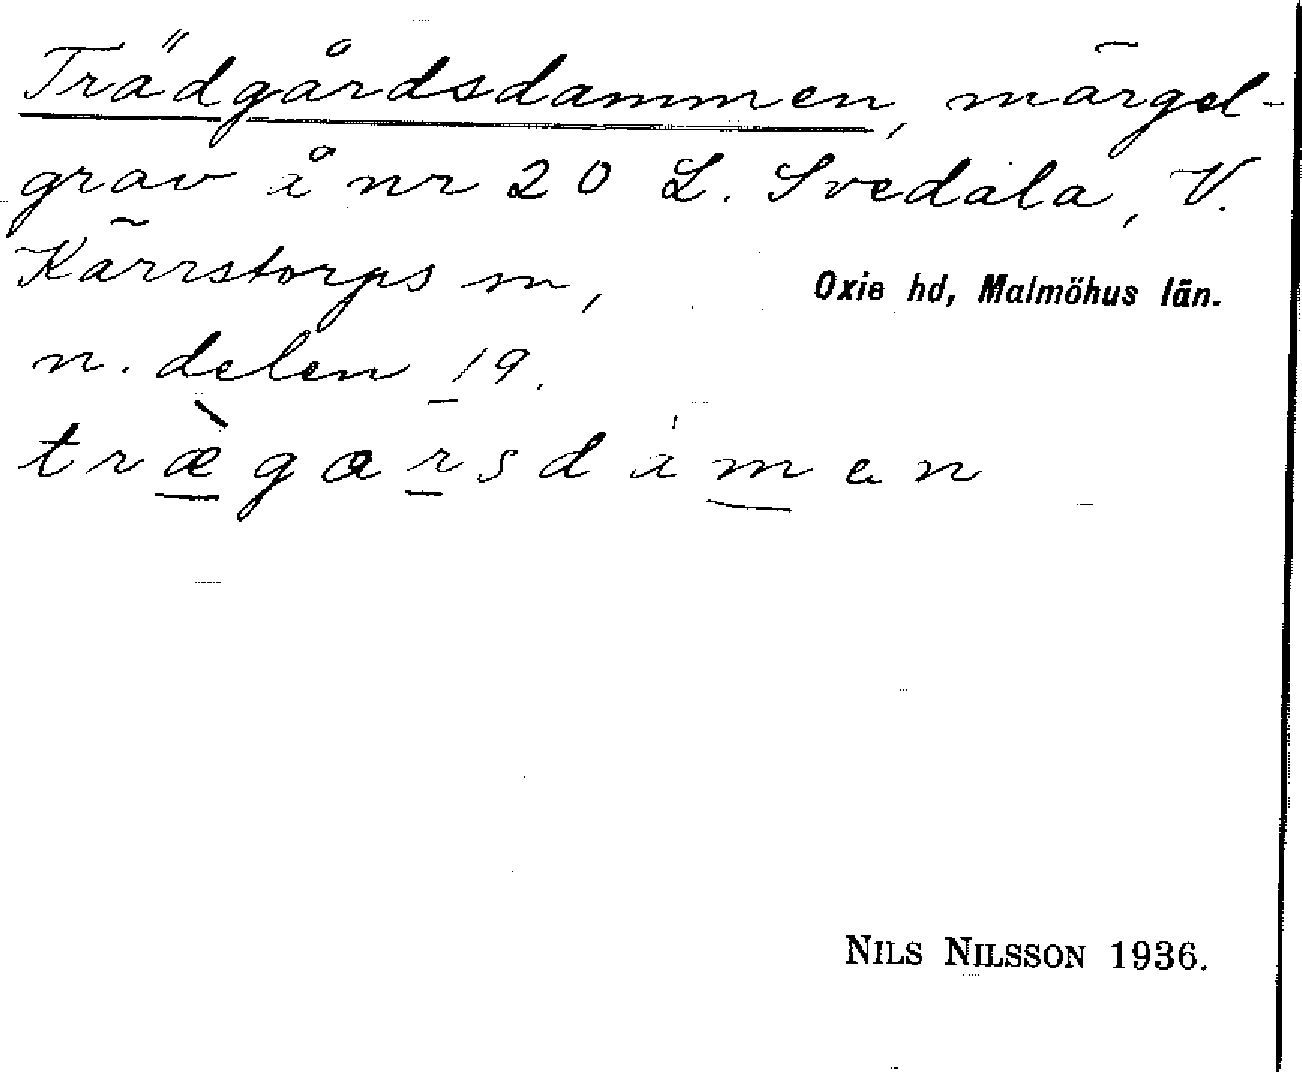 Trädgårdsdammen, märgel-
grav å nr 20 L. Svedala, V.
Kärrstorps m,
Oxie hd, Malmöhus län.
n. delen 19.
træ̀garsdamen
NILS NILSSON 1936.